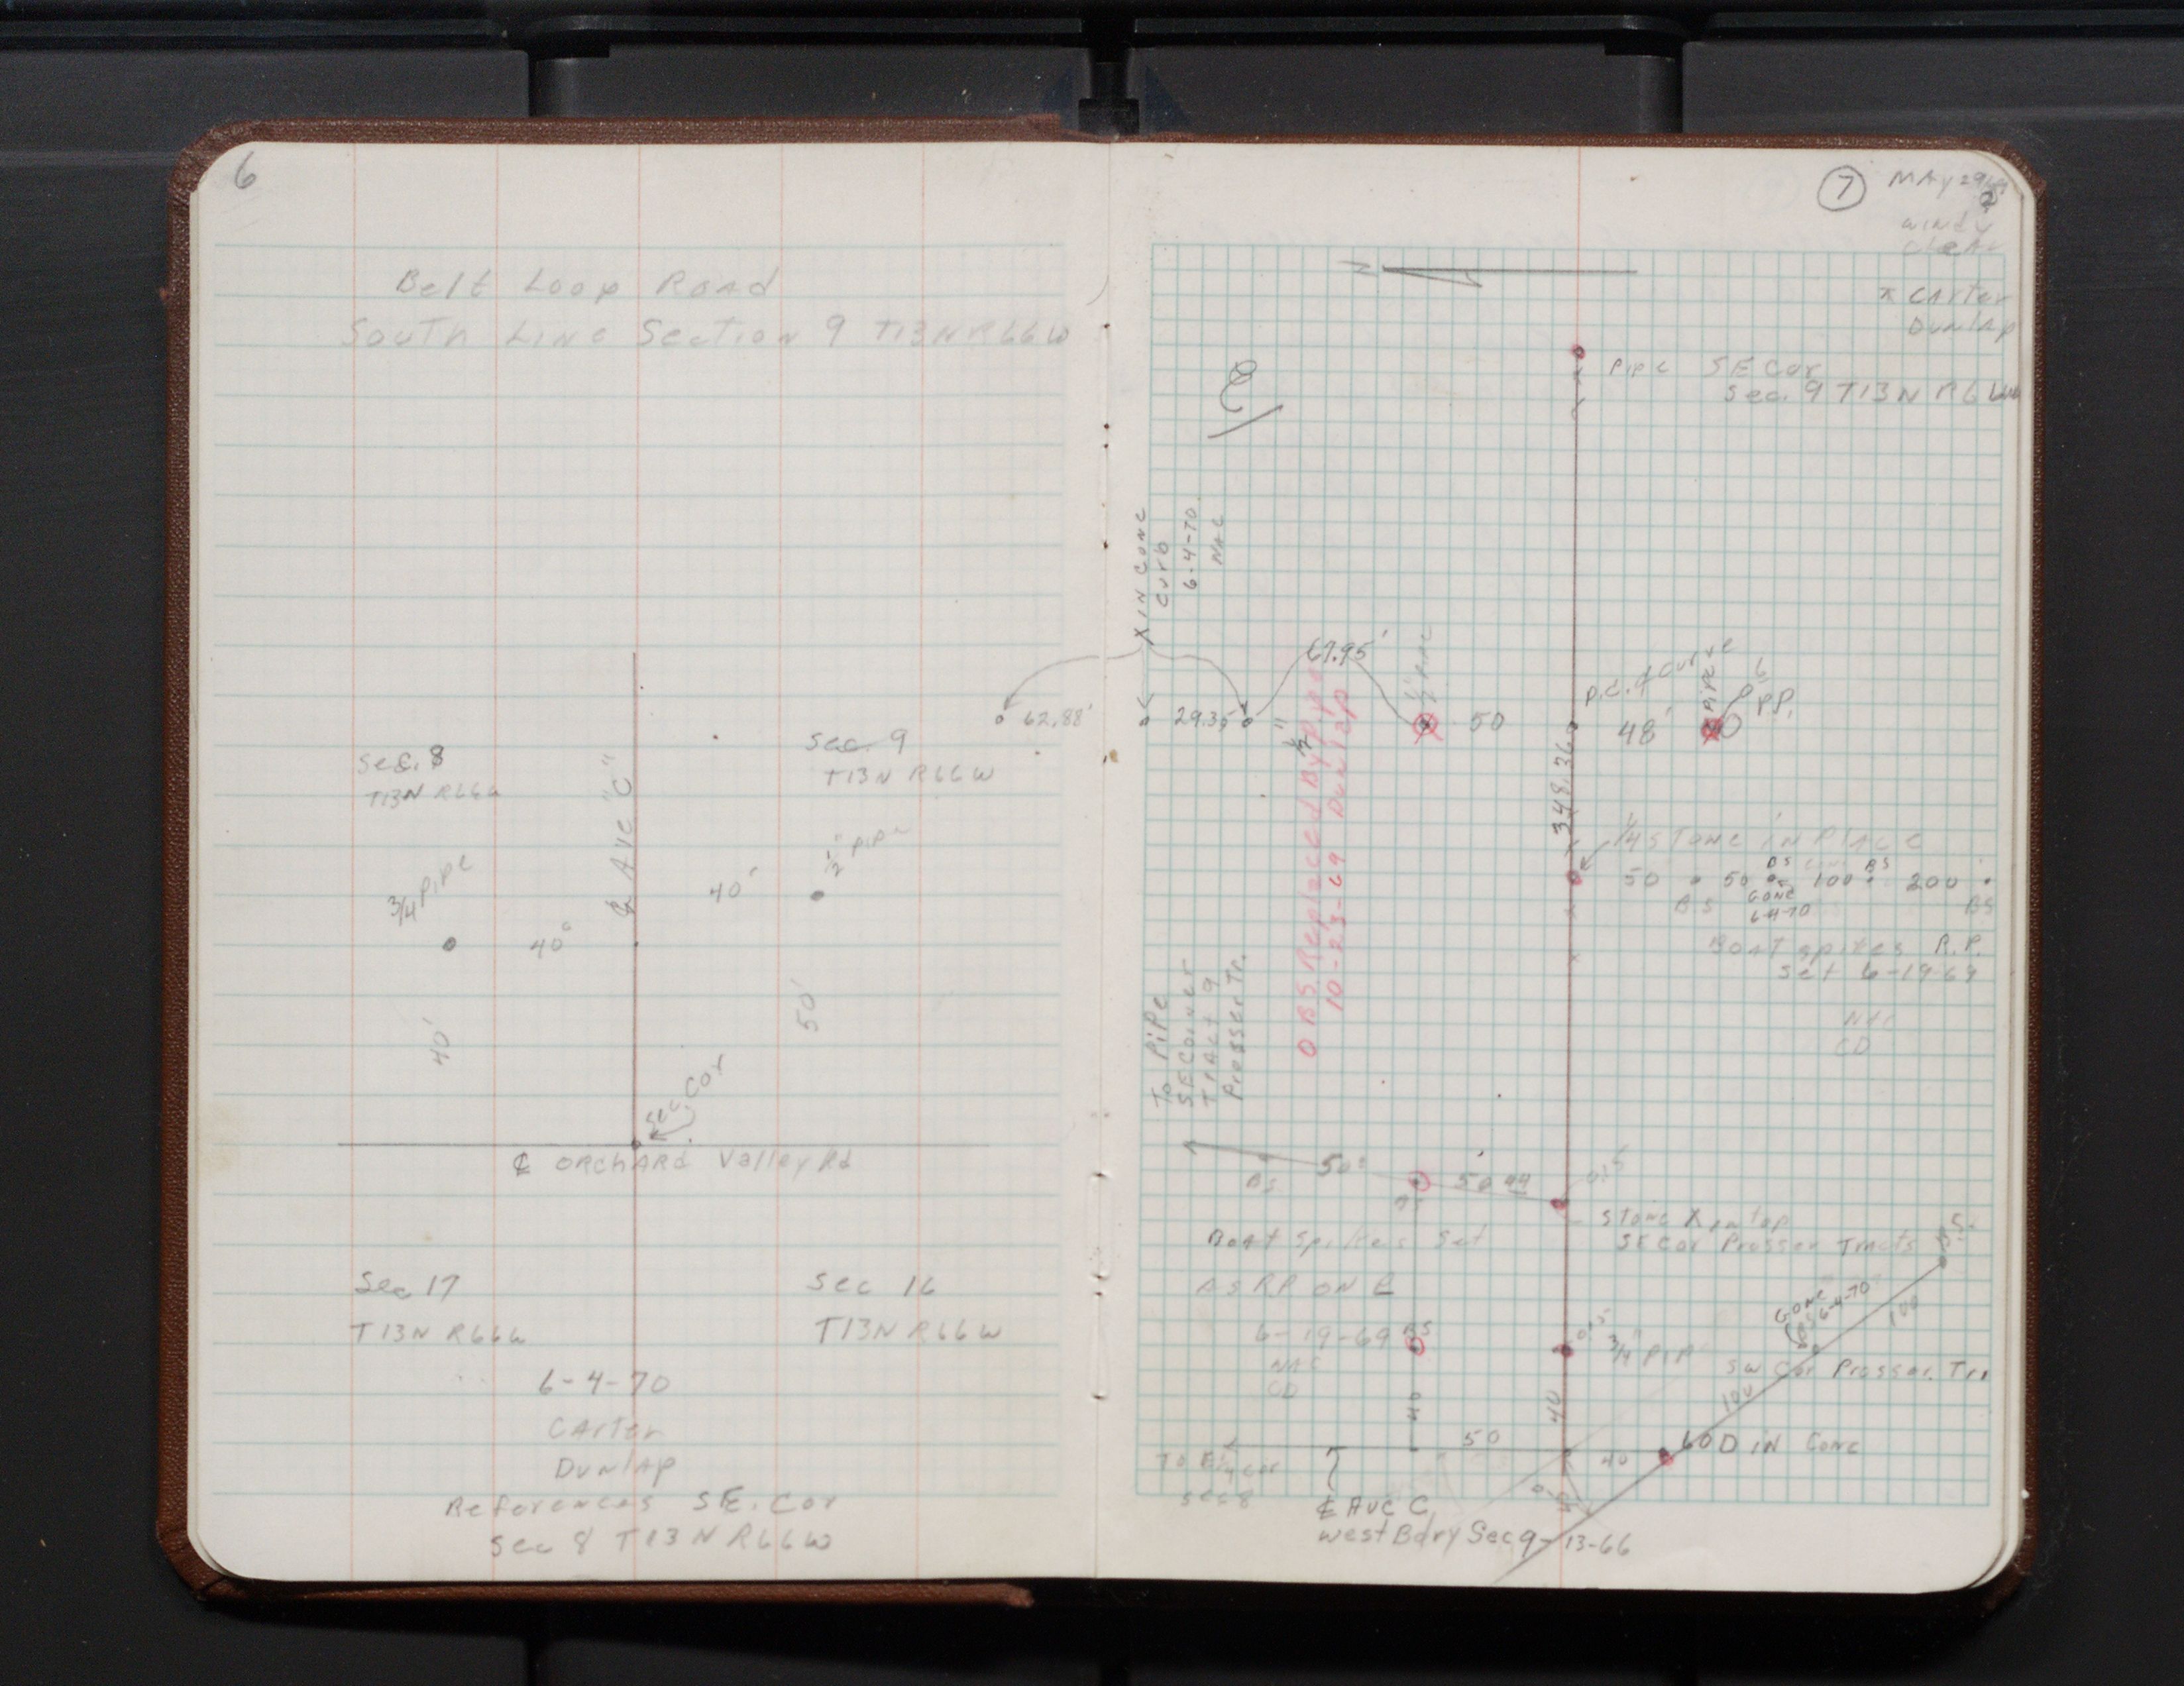 6
Belt Loop Road
South Line Section 9 T13N R66W
62.88'
Sec. 8
T13N R66W
Sec. 9
T13N R66W
℄ Ave "C"
3/4 Pipe
40'
40'
1/2" Pipe
40'
50'
Sec. Cor
℄ Orchard Valley Rd
Sec 17
T13N R66W
Sec 16
T13N R66W
6-4-70
Carter
Dunlap
References SE. Cor
Sec 8 T13N R66W
7
May 29
windy
clear
Carter
Dunlap
Pipe SE Cor
Sec. 9 T13N R66W
X in Conc
Curb
6-4-70
NAC
67.95'
29.35'
1/2" Pipe
50
P.C. of Curve
48'
Pipe
P.P.
348.36
O B.S. Replaced By 1/2" Pipe
10-23-69 Dunlap
1/4 Stone in Place
50 50 100 200
BS BS
B.S Gone BS
6-4-70
Boat spikes R.P.
Set 6-19-69
NAC
CD
To Pipe
SE Corner
Tract 9
Prosser Tr.
50
BS
50.99
BS
0.15
Stone X on top
SE Cor Prosser Tracts
Boat Spikes Set
As RP on
6-19-69
NAC
CD
BS
3/4" Pipe
SW Cor Prosser Tr.
Gone
6-4-70
100
100
40
40
50
40
60D in Conc
To
Sec 8
℄ Ave C
West Bdry Sec 9-13-66